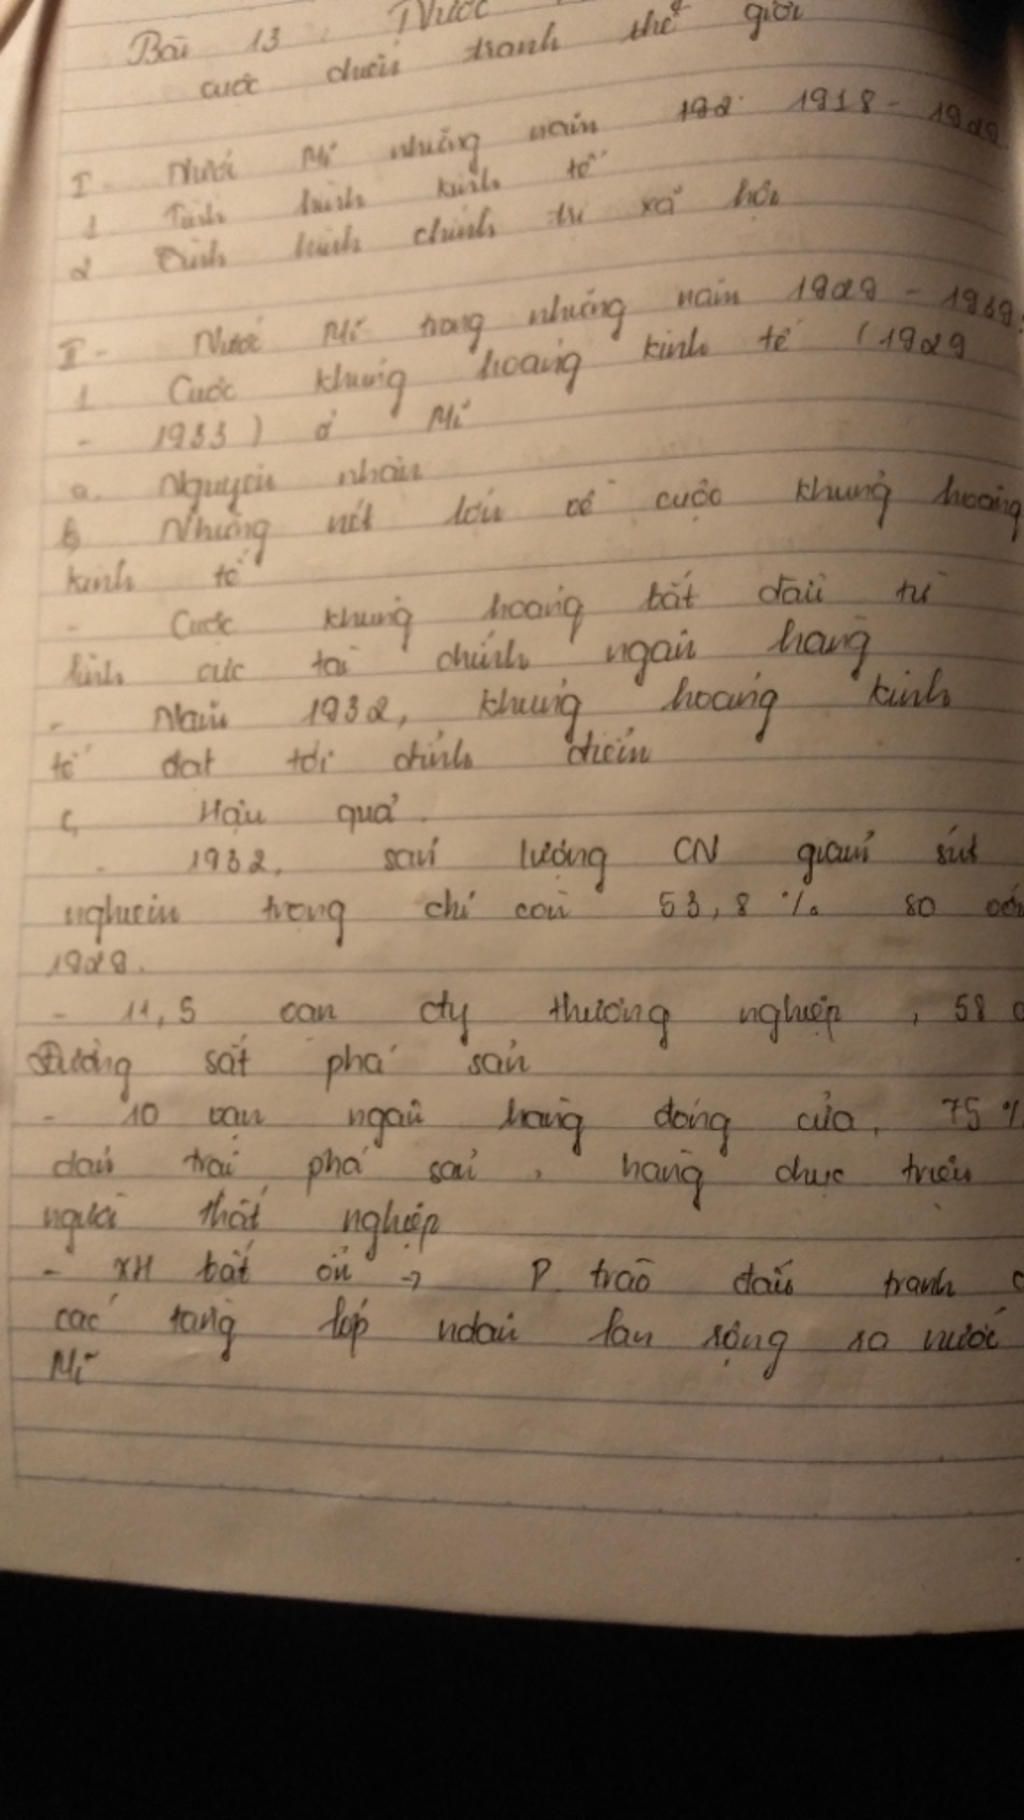 Bài 13 : Nước
cuộc chiến tranh thế giới
I - Nước Mĩ những năm 192 1918 - 1929
1 Tình hình kinh tế
2 Tình hình chính trị xã hội
II - Nước Mĩ trong những năm 1929 - 1939
1 Cuộc khủng hoảng kinh tế (1929
- 1933) ở Mĩ
a. Nguyên nhân
b Những nét lớn về cuộc khủng hoảng
kinh tế
- Cuộc khủng hoảng bắt đầu từ
lĩnh cực tài chính ngân hàng
- Năm 1932, khủng hoảng kinh
tế đạt tới đỉnh điểm
c, Hậu quả.
- 1932, sản lượng CN giảm sút
nghiêm trọng chỉ còn 53,8 % so với
1929.
- 11,5 vạn cty thương nghiệp, 58 c
Đường sắt phá sản
- 10 vạn ngân hàng đóng cửa, 75 %
dân trại phá sản, hàng chục triệu
người thất nghiệp
- XH bất ổn → P. trào đấu tranh c
các tầng lớp ndân lan rộng ro nước
Mĩ